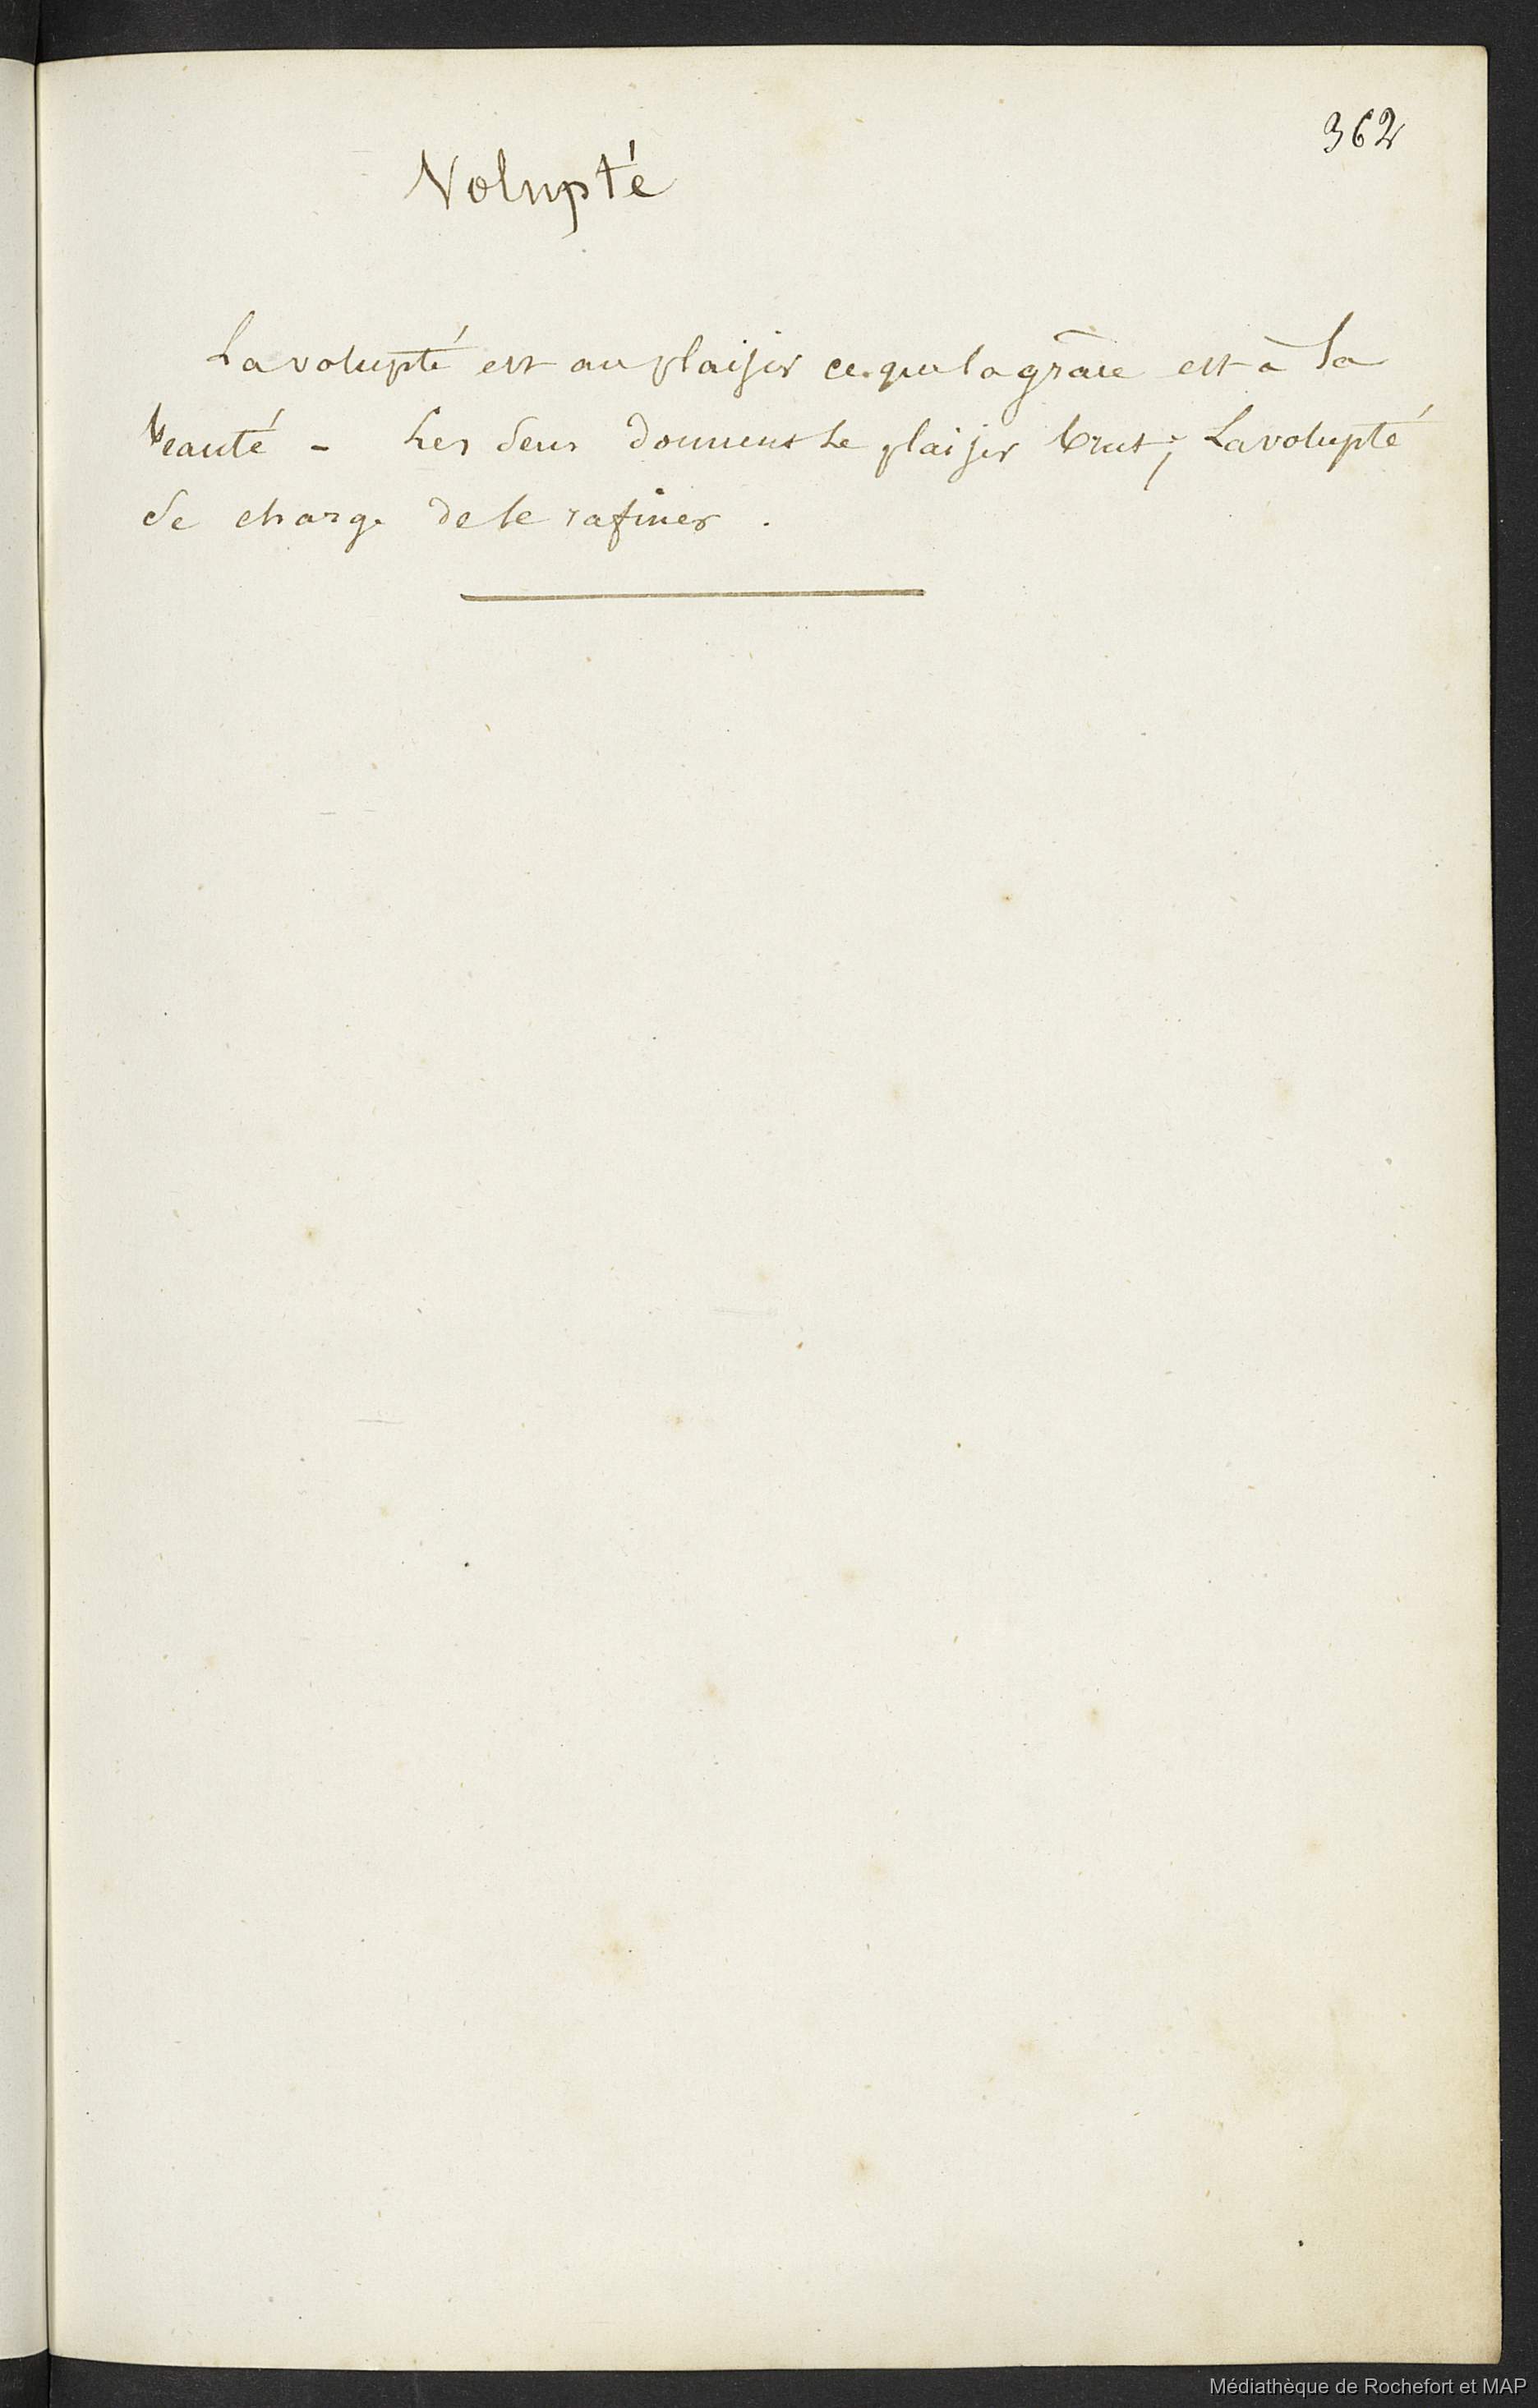 362
Volupté
La volupté est au plaisir ce que la grâce est à la
beauté - Les sens donnent le plaisir brut; La volupté
se charge de le rafiner.
Médiathèque de Rochefort et MAP